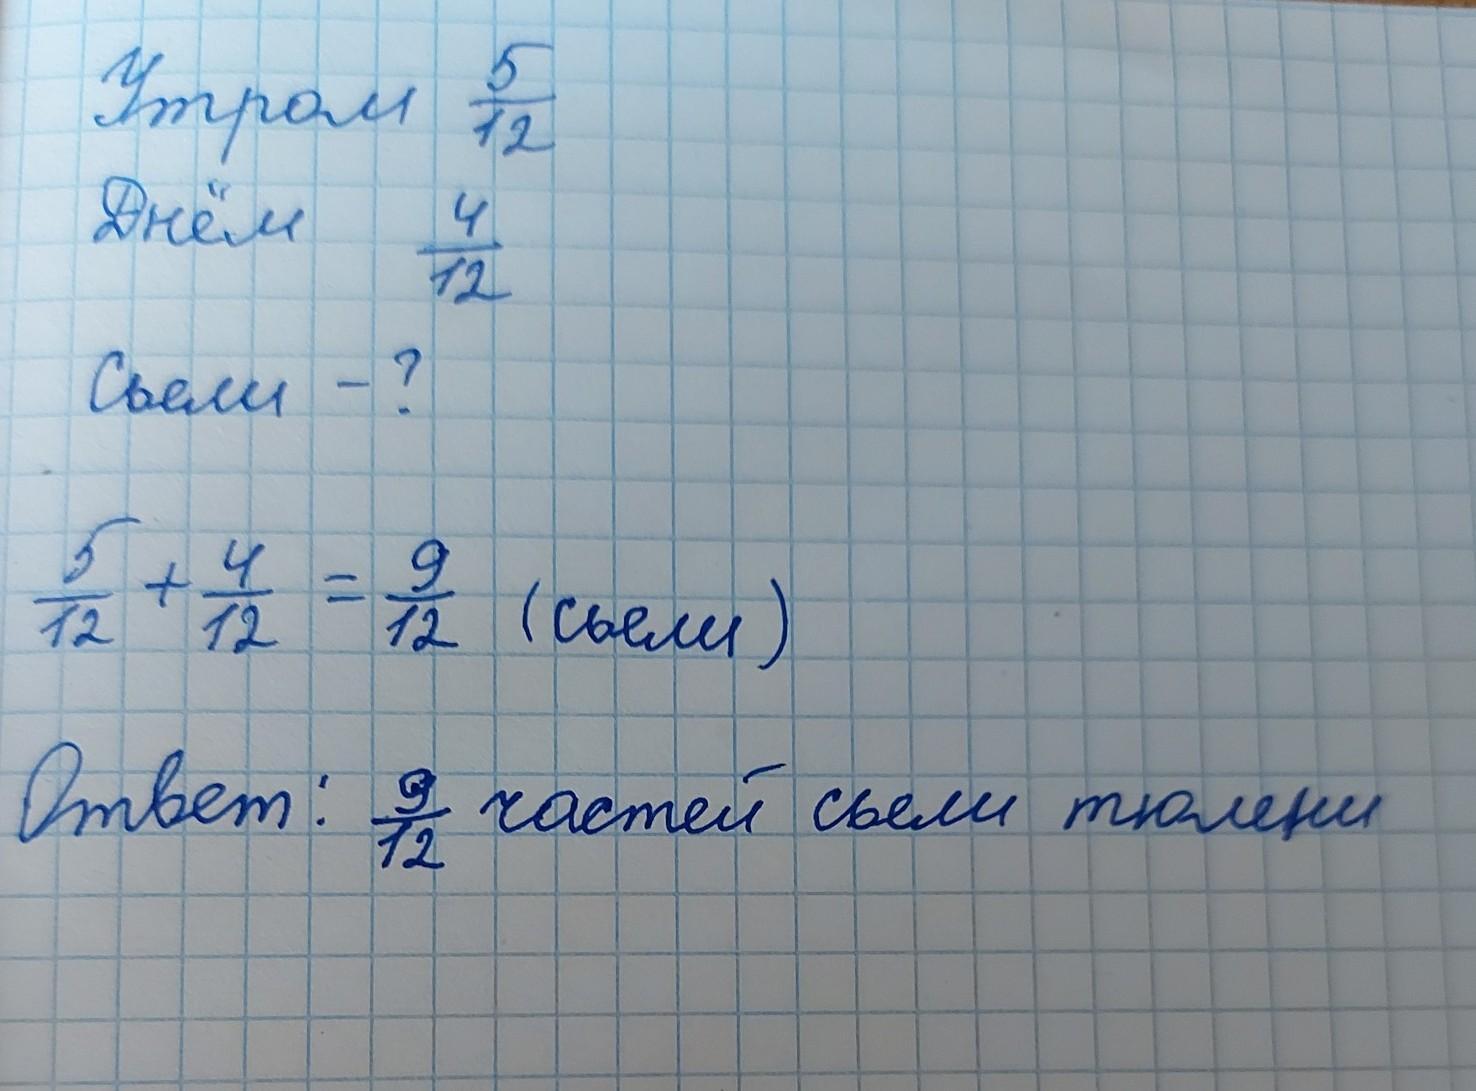 Утром 5/12
Днём 4/12
Сьели - ?
5/12 + 4/12 = 9/12 (сьели)
Ответ: 9/12 частей сьели тюлени